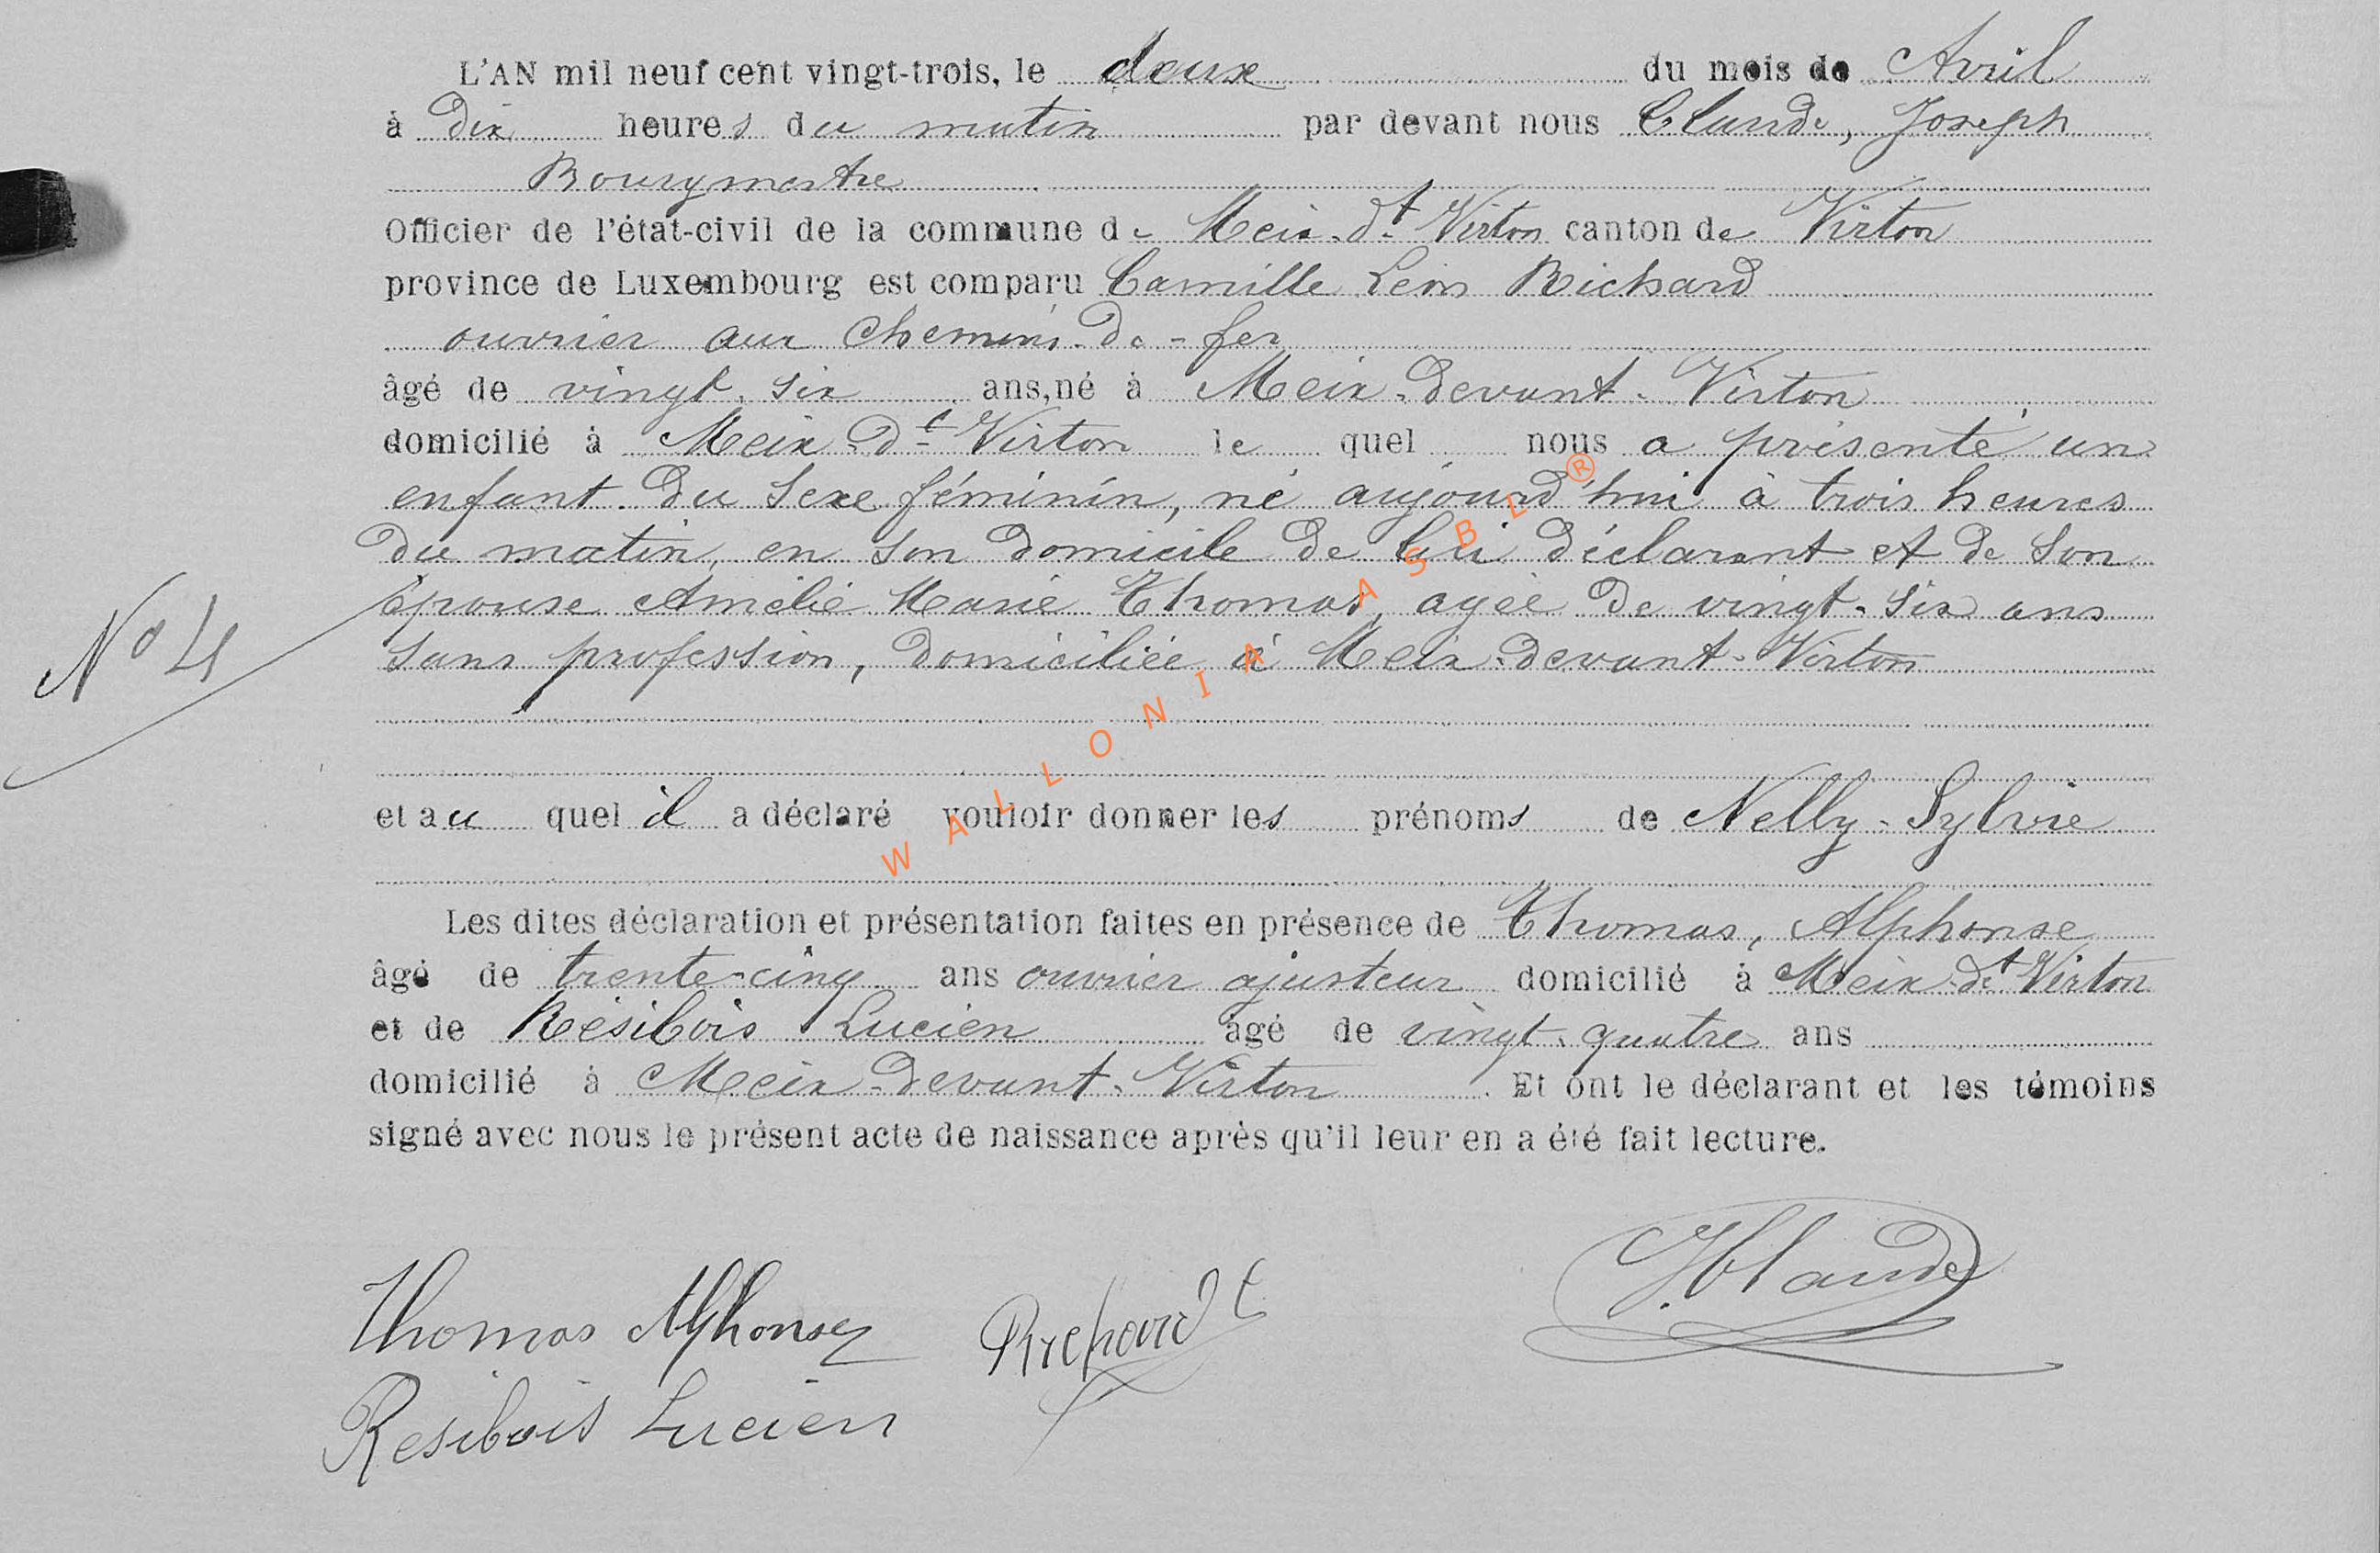 L'AN mil neuf cent vingt-trois, le deux du mois de Avril
à dix heures du matin par devant nous Claude, Joseph
Bourgmestre
Officier de l'état-civil de la commune de Meix-dt Virton canton de Virton
province de Luxembourg est comparu Camille Léon Richard
ouvrier aux chemins-de-fer
âgé de vingt-six ans, né à Meix-devant-Virton
domicilié à Meix-dt Virton lequel nous a présenté un
enfant du sexe féminin, né aujourd'hui à trois heures
du matin, en son domicile de lui déclarant et de son
épouse Amélie Marie Thomas, agée de vingt-six ans
N° 4
sans profession, domiciliée à Meix-devant-Virton
et au quel il a déclaré vouloir donner les prénoms de Nelly-Sylvie
Les dites déclaration et présentation faites en présence de Thomas, Alphonse
âgé de trente-cinq ans ouvrier ajusteur domicilié à Meix-dt Virton
et de Résibois Lucien âgé de vingt-quatre ans
domicilié à Meix-devant-Virton. Et ont le déclarant et les témoins
signé avec nous le présent acte de naissance après qu'il leur en a été fait lecture.
Thomas Alphonse
Richard C
J. Claude
Resibois Lucien
WALLONIA ASBL ®